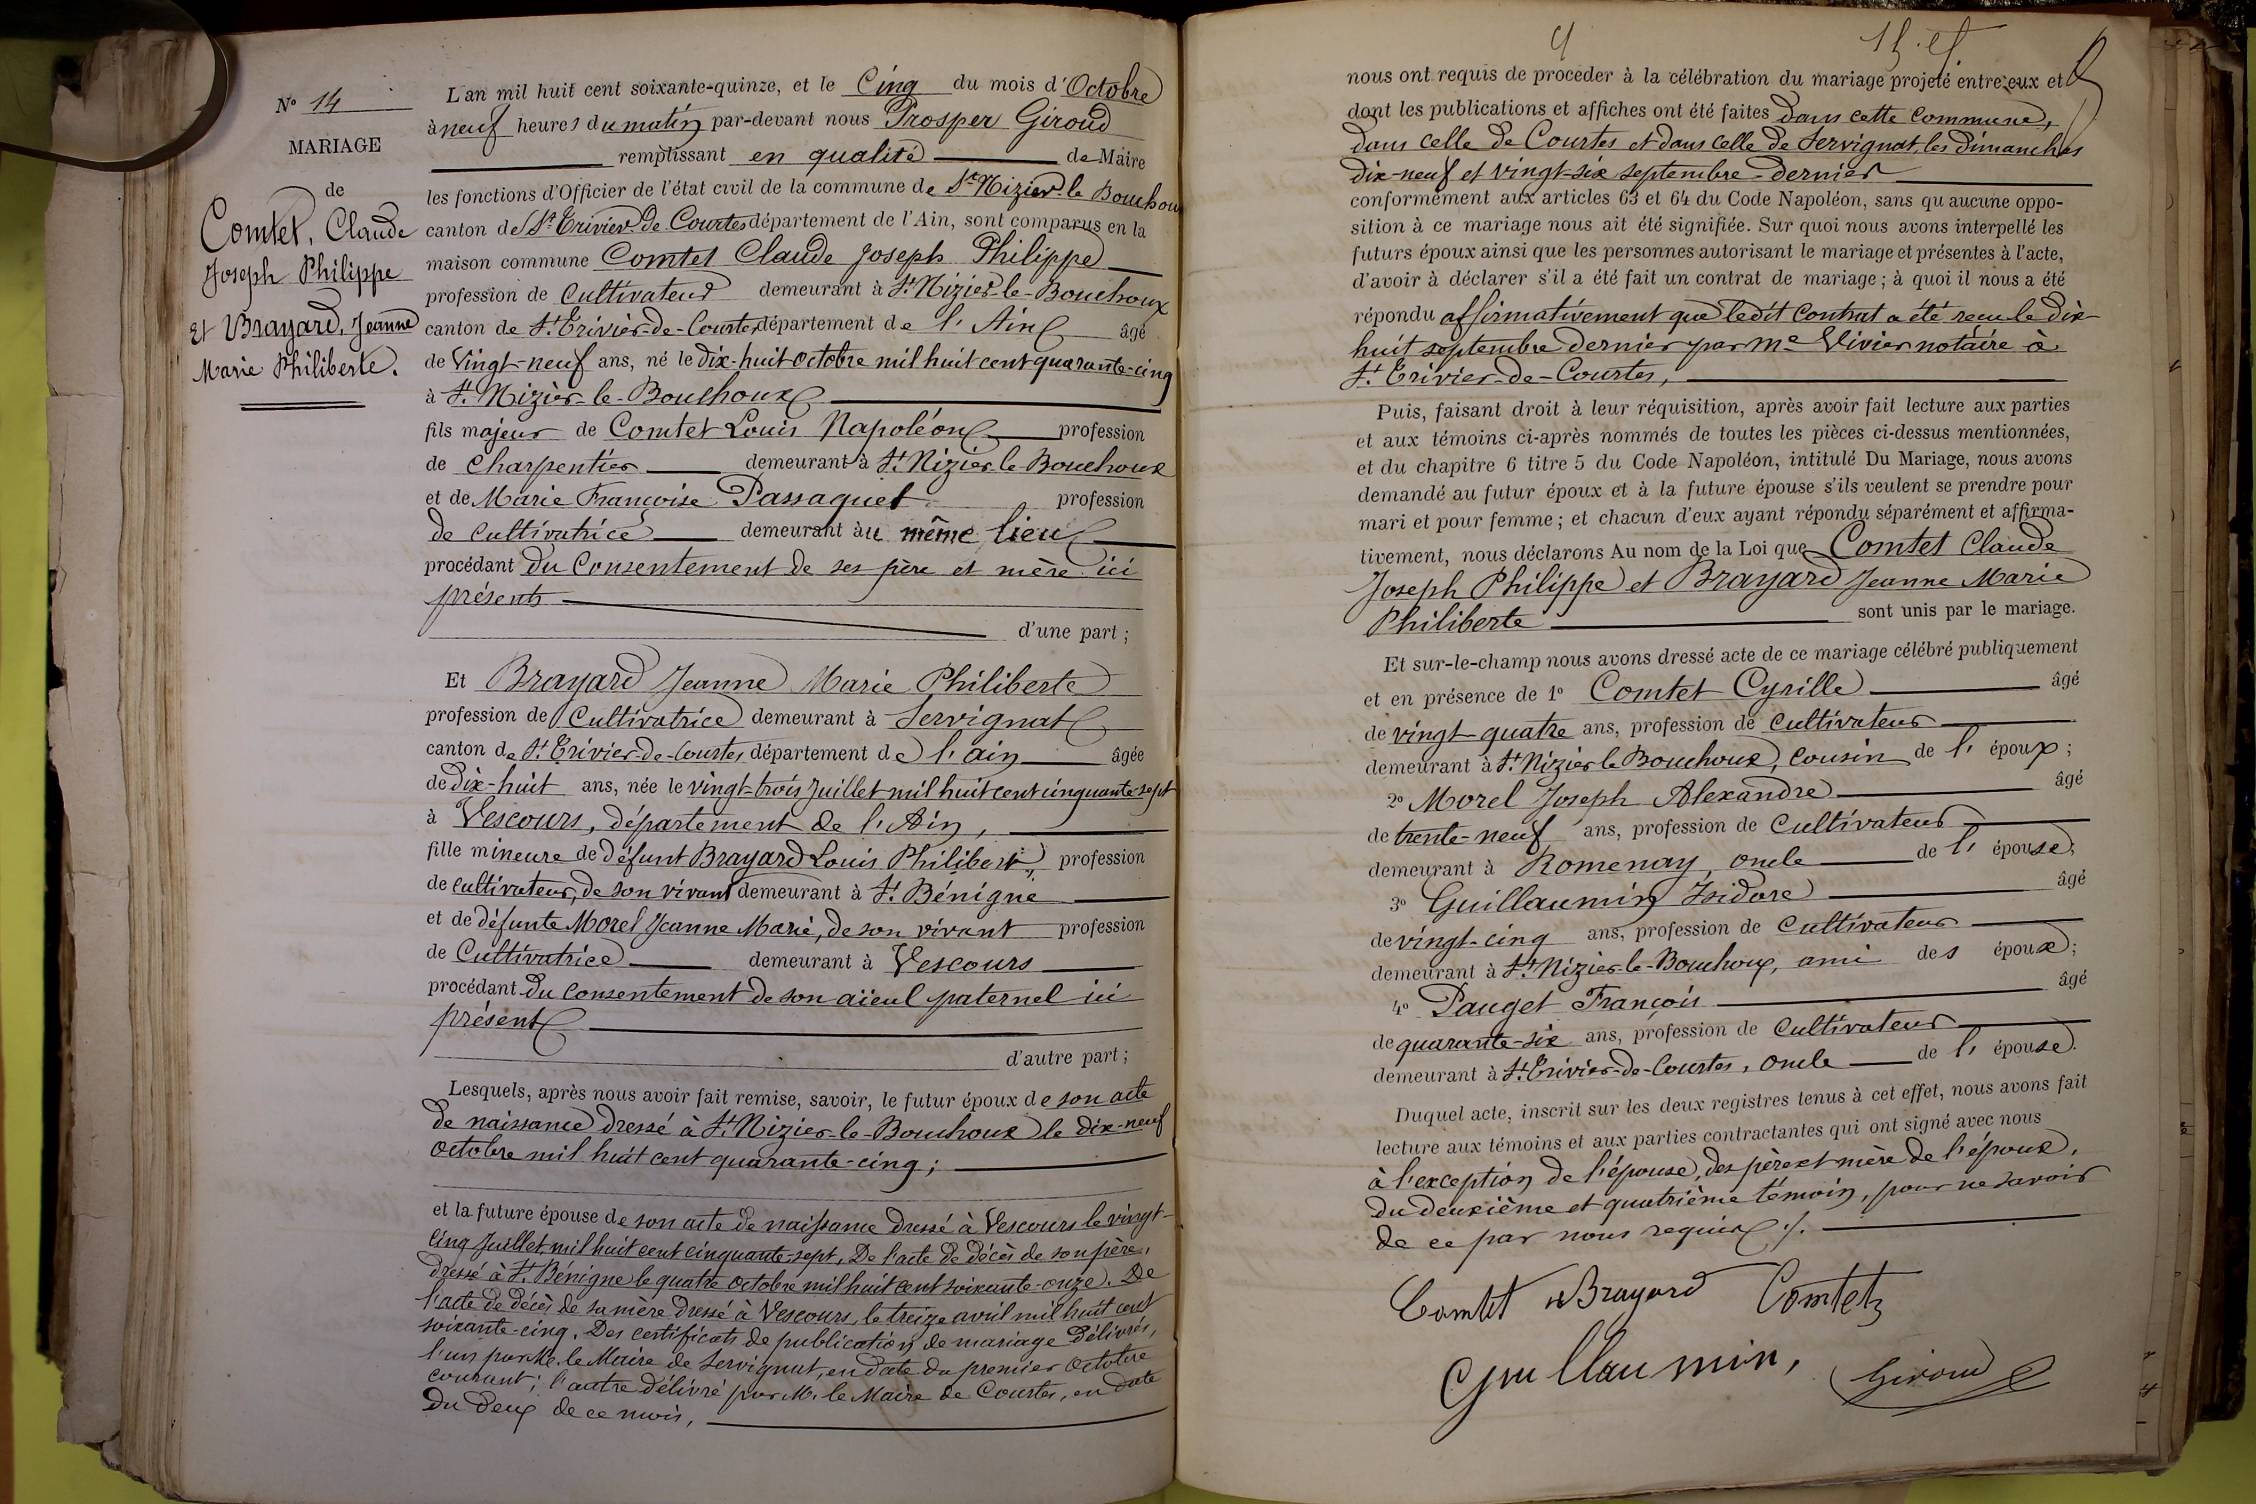 N° 14
MARIAGE
de
Comtet, Claude
Joseph Philippe
Et Brayard, Jeanne
Marie Philiberte.
L'an mil huit cent soixante-quinze, et le Cinq du mois d'Octobre
à neuf heures du matin par-devant nous Prosper Giroud
remplissant en qualité de Maire
les fonctions d'Officier de l'état civil de la commune de St Nizier-le Bouchoux
canton de St Trivier de Courtes département de l'Ain, sont comparus en la
maison commune Comtet Claude Joseph Philippe
profession de Cultivateur demeurant à St Nizier-le-Bouchoux
canton de St Trivier-de-Courtes département de l'Ain âgé
de Vingt-neuf ans, né le dix-huit octobre mil huit cent quarante-cinq
à St Nizier-le-Bouchoux
fils majeur de Comtet Louis Napoléon profession
de Charpentier demeurant à St Nizier le Bouchoux
et de Marie Françoise Passaquet profession
de cultivatrice demeurant au même lieu
procédant du Consentement de ses père et mère ici
présents
d'une part ;
Et Brayard Jeanne Marie Philiberte
profession de Cultivatrice demeurant à Servignat
canton de St Trivier-de-Courtes département de l'ain âgée
de dix-huit ans, née le vingt-trois Juillet mil huit cent cinquante-sept
à Vescours, département de l'Ain,
fille mineure de défunt Brayard Louis Philibert, profession
de cultivateur, de son vivant demeurant à St Bénigne
et de défunte Morel Jeanne Marie, de son vivant profession
de Cultivatrice demeurant à Vescours
procédant du consentement de son aïeul paternel ici
présent
d'autre part ;
Lesquels, après nous avoir fait remise, savoir, le futur époux de son acte
de naissance dressé à St Nizier-le-Bouchoux le dix-neuf
octobre mil huit cent quarante-cinq ;
et la future épouse de son acte de naissance dressé à Vescours le vingt-
cinq Juillet mil huit cent cinquante-sept, De l'acte de décès de son père,
dressé à St Bénigne le quatre octobre mil huit cent soixante-onze. De
l'acte de décès de sa mère dressé à Vescours, le treize avril mil huit cent
soixante-cinq. Des certificats de publication de mariage délivrés,
l'un par M. le Maire de Servignat, en date du premier octobre
courant ; l'autre délivré par M. le Maire de Courtes, en date
du deux de ce mois,
nous ont requis de procéder à la célébration du mariage projeté entre eux et
dont les publications et affiches ont été faites dans cette commune,
dans celle de Courtes et dans celle de Servignat, les dimanches
dix-neuf et vingt-six septembre dernier
conformément aux articles 63 et 64 du Code Napoléon, sans qu'aucune oppo-
sition à ce mariage nous ait été signifiée. Sur quoi nous avons interpellé les
futurs époux ainsi que les personnes autorisant le mariage et présentes à l'acte,
d'avoir à déclarer s'il a été fait un contrat de mariage ; à quoi il nous a été
répondu affirmativement que ledit Contrat a été reçu le dix-
huit septembre dernier par Me Vivier notaire à
St Trivier-de-Courtes,
Puis, faisant droit à leur réquisition, après avoir fait lecture aux parties
et aux témoins ci-après nommés de toutes les pièces ci-dessus mentionnées,
et du chapitre 6 titre 5 du Code Napoléon, intitulé Du Mariage, nous avons
demandé au futur époux et à la future épouse s'ils veulent se prendre pour
mari et pour femme ; et chacun d'eux ayant répondu séparément et affirma-
tivement, nous déclarons Au nom de la Loi que Comtet Claude
Joseph Philippe et Brayard Jeanne Marie
Philiberte sont unis par le mariage.
Et sur-le-champ nous avons dressé acte de ce mariage célébré publiquement
et en présence de 1° Comtet Cyrille âgé
de vingt quatre ans, profession de cultivateur
demeurant à St Nizier le Bouchoux, cousin de l'époux ;
2° Morel Joseph Alexandre âgé
de trente-neuf ans, profession de Cultivateur
demeurant à Romenay, oncle de l'épouse ;
3° Guillaumin Isidore âgé
de vingt-cinq ans, profession de Cultivateur
demeurant à St Nizier-le-Bouchoux, ami des époux ;
4° Pauget François âgé
de quarante-six ans, profession de Cultivateur
demeurant à St Trivier-de-Courtes, oncle de l'épouse.
Duquel acte, inscrit sur les deux registres tenus à cet effet, nous avons fait
lecture aux témoins et aux parties contractantes qui ont signé avec nous
à l'exception de l'épouse, des père et mère de l'époux,
du deuxième et quatrième témoin, pour ne savoir
de ce par nous requis ./.
Comtet Brayard Comtet
Guillaumin, Giroud